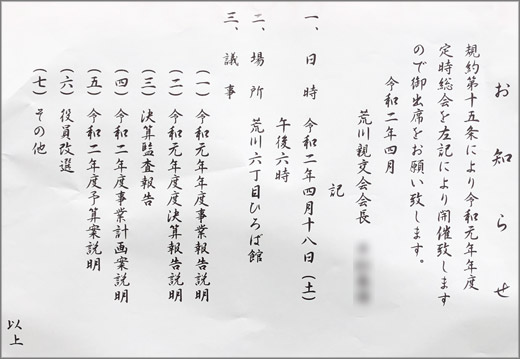 お知らせ
規約第十五条により令和元年年度
定時総会を左記により開催致します
ので御出席をお願い致します。
令和二年四月
荒川親交会会長
記
一、日時 令和二年四月十八日(土)
午後六時
二、場所 荒川六丁目ひろば館
三、議事
(一)令和元年年度事業報告説明
(二)令和元年度度決算報告説明
(三)決算監査報告
(四)令和二年度事業計画案説明
(五)令和二年度予算案説明
(六)役員改選
(七)その他
以上